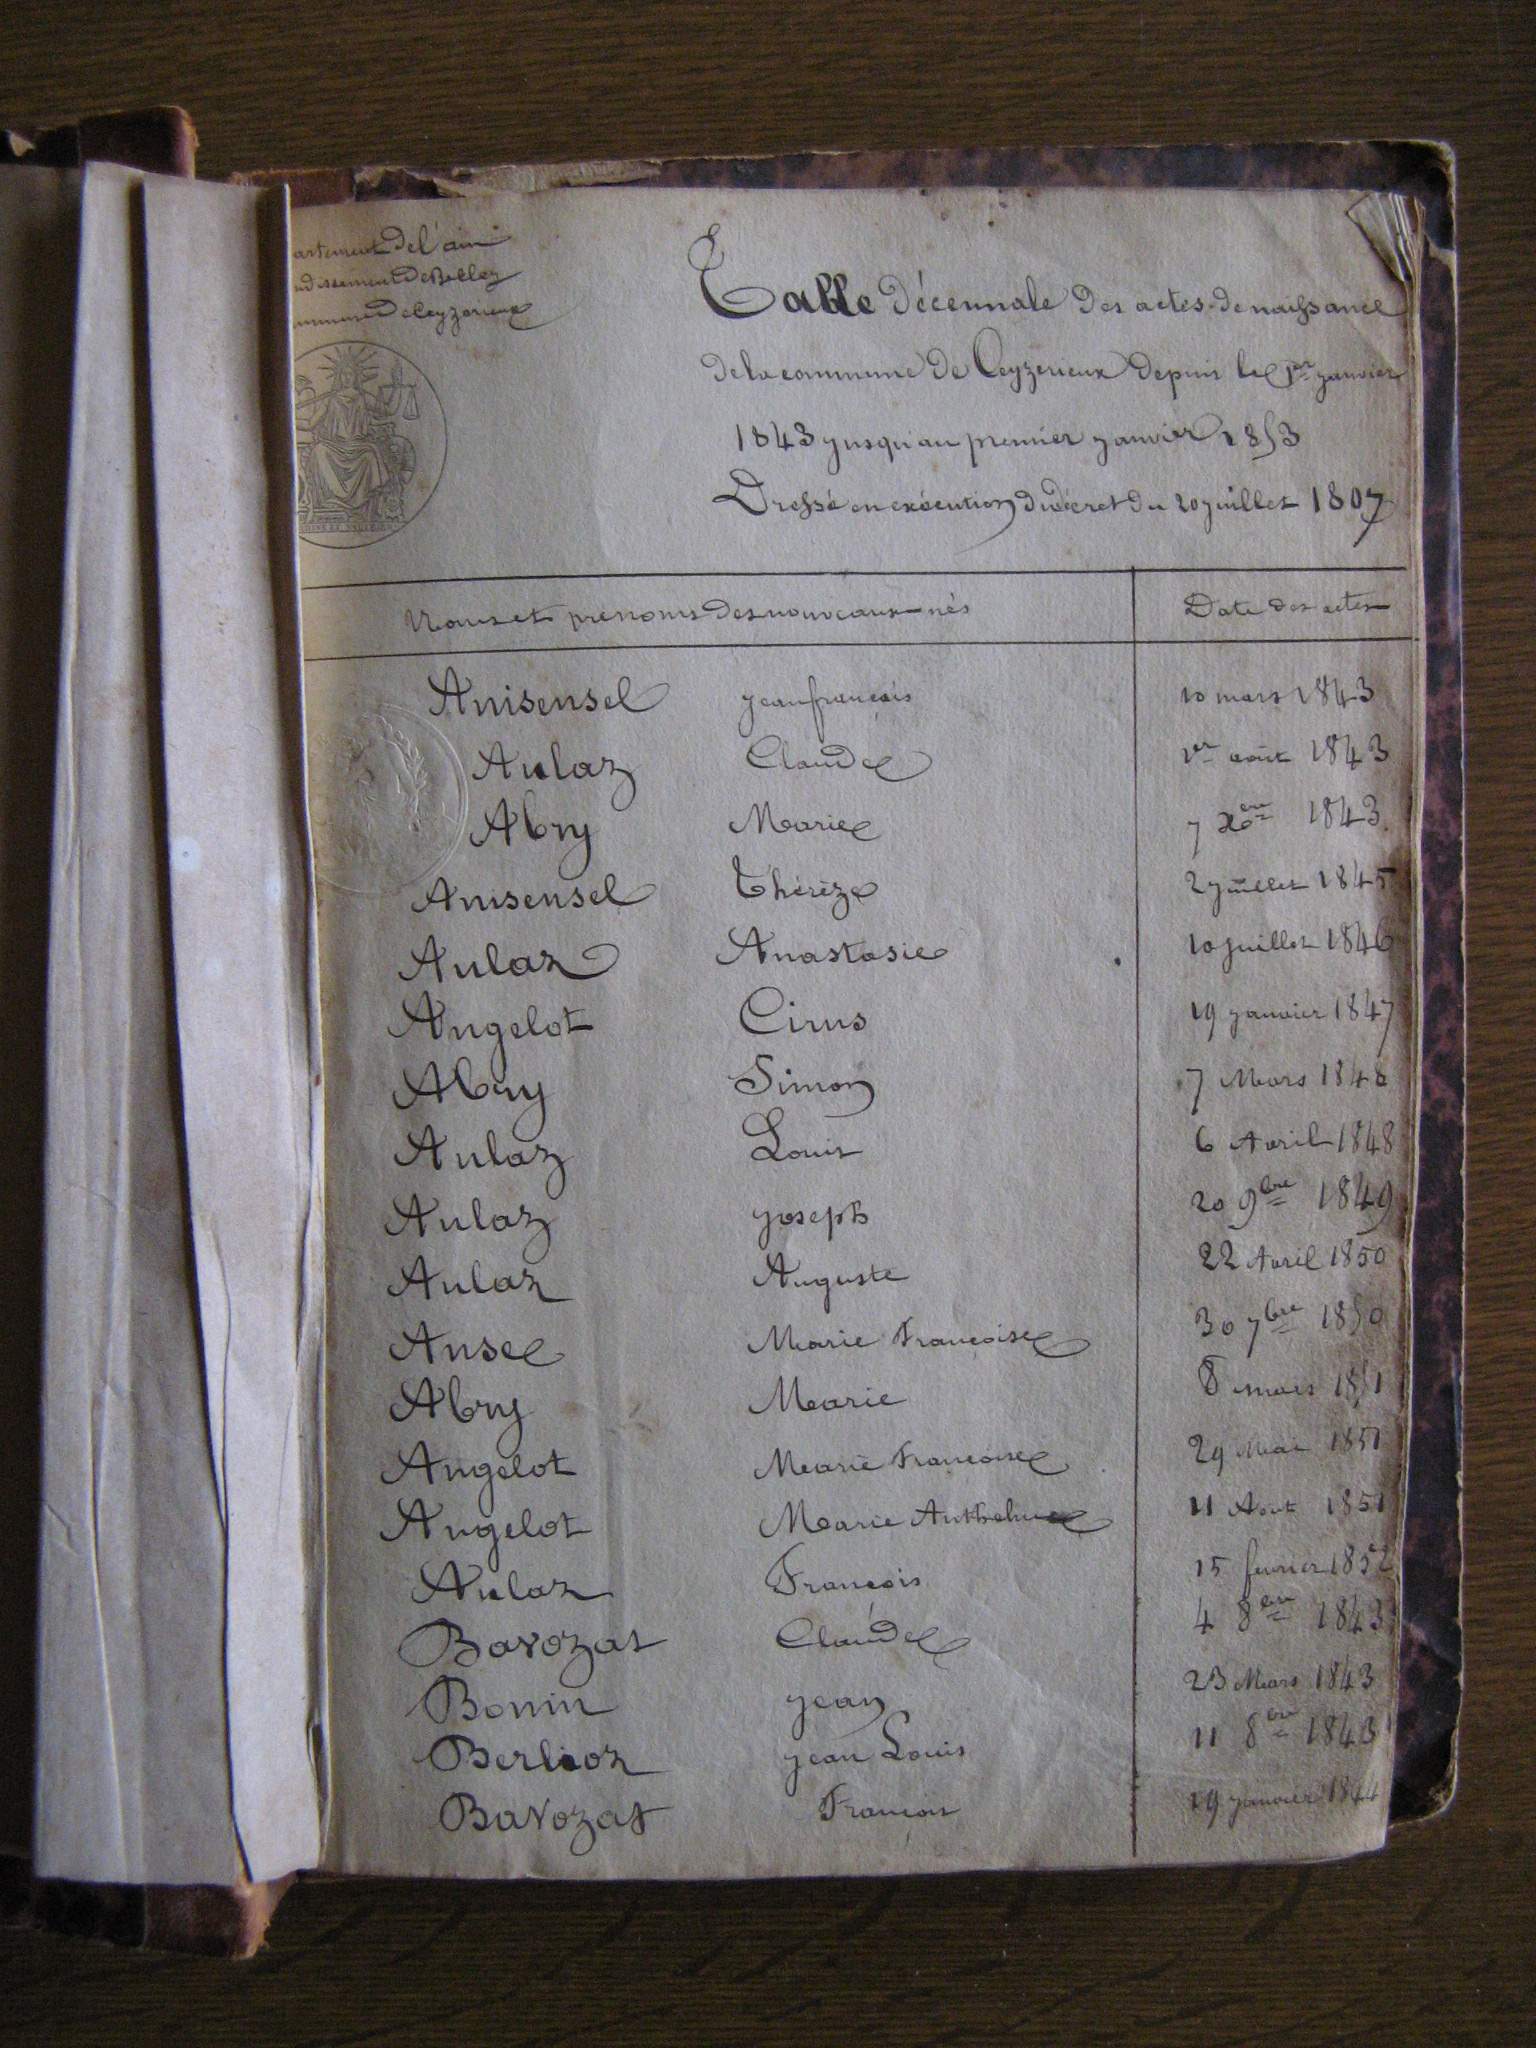 artement de l'ain
ndissement de Belley
mmune de Ceyzerieux
Table décennale des actes de naissance
de la commune de Ceyzerieux depuis le 1er janvier
1843 jusqu'au premier janvier 1853
Dressé en exécution du décret du 20 juillet 1807
Noms et prenoms des nouveaux-nés Date des actes
Anisensel jean françois 10 mars 1843
Aulaz Claude 1er août 1843
Abry Marie 7 Xbre 1843
Anisensel Thérèze 2 juillet 1845
Aulaz Anastasie 10 juillet 1846
Angelot Cirus 19 janvier 1847
Abry Simon 7 Mars 1848
Aulaz Louis 6 Avril 1848
Aulaz joseph 20 9bre 1849
Aulaz Auguste 22 Avril 1850
Anse Marie Françoise 30 7bre 1850
Abry Marie 8 mars 1851
Angelot Marie Francoise 29 Mai 1851
Angelot Marie Anthelme 11 Aout 1851
Aulaz François 15 fevrier 1852
Bavozat Claude 4 8bre 1843
Bonin jean 23 Mars 1843
Berlioz jean Louis 11 8bre 1843
Bavozat François 19 janvier 1844